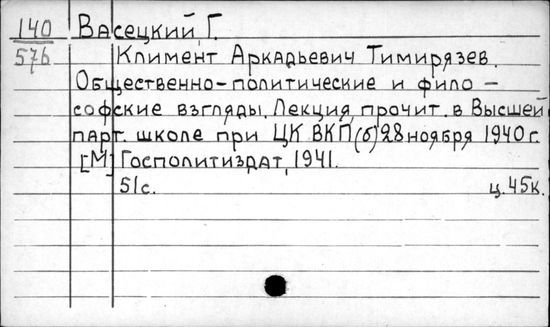 140 Васецкий, Г.
576 Климент Аркадьевич Тимирязев.
Общественно-политические и фило-
софские взгляды. Лекция, прочит. в Высшей
парт. школе при ЦК ВКП(б) 28 ноября 1940 г.
[М] Госполитиздат, 1941.
51с. ц. 45к.